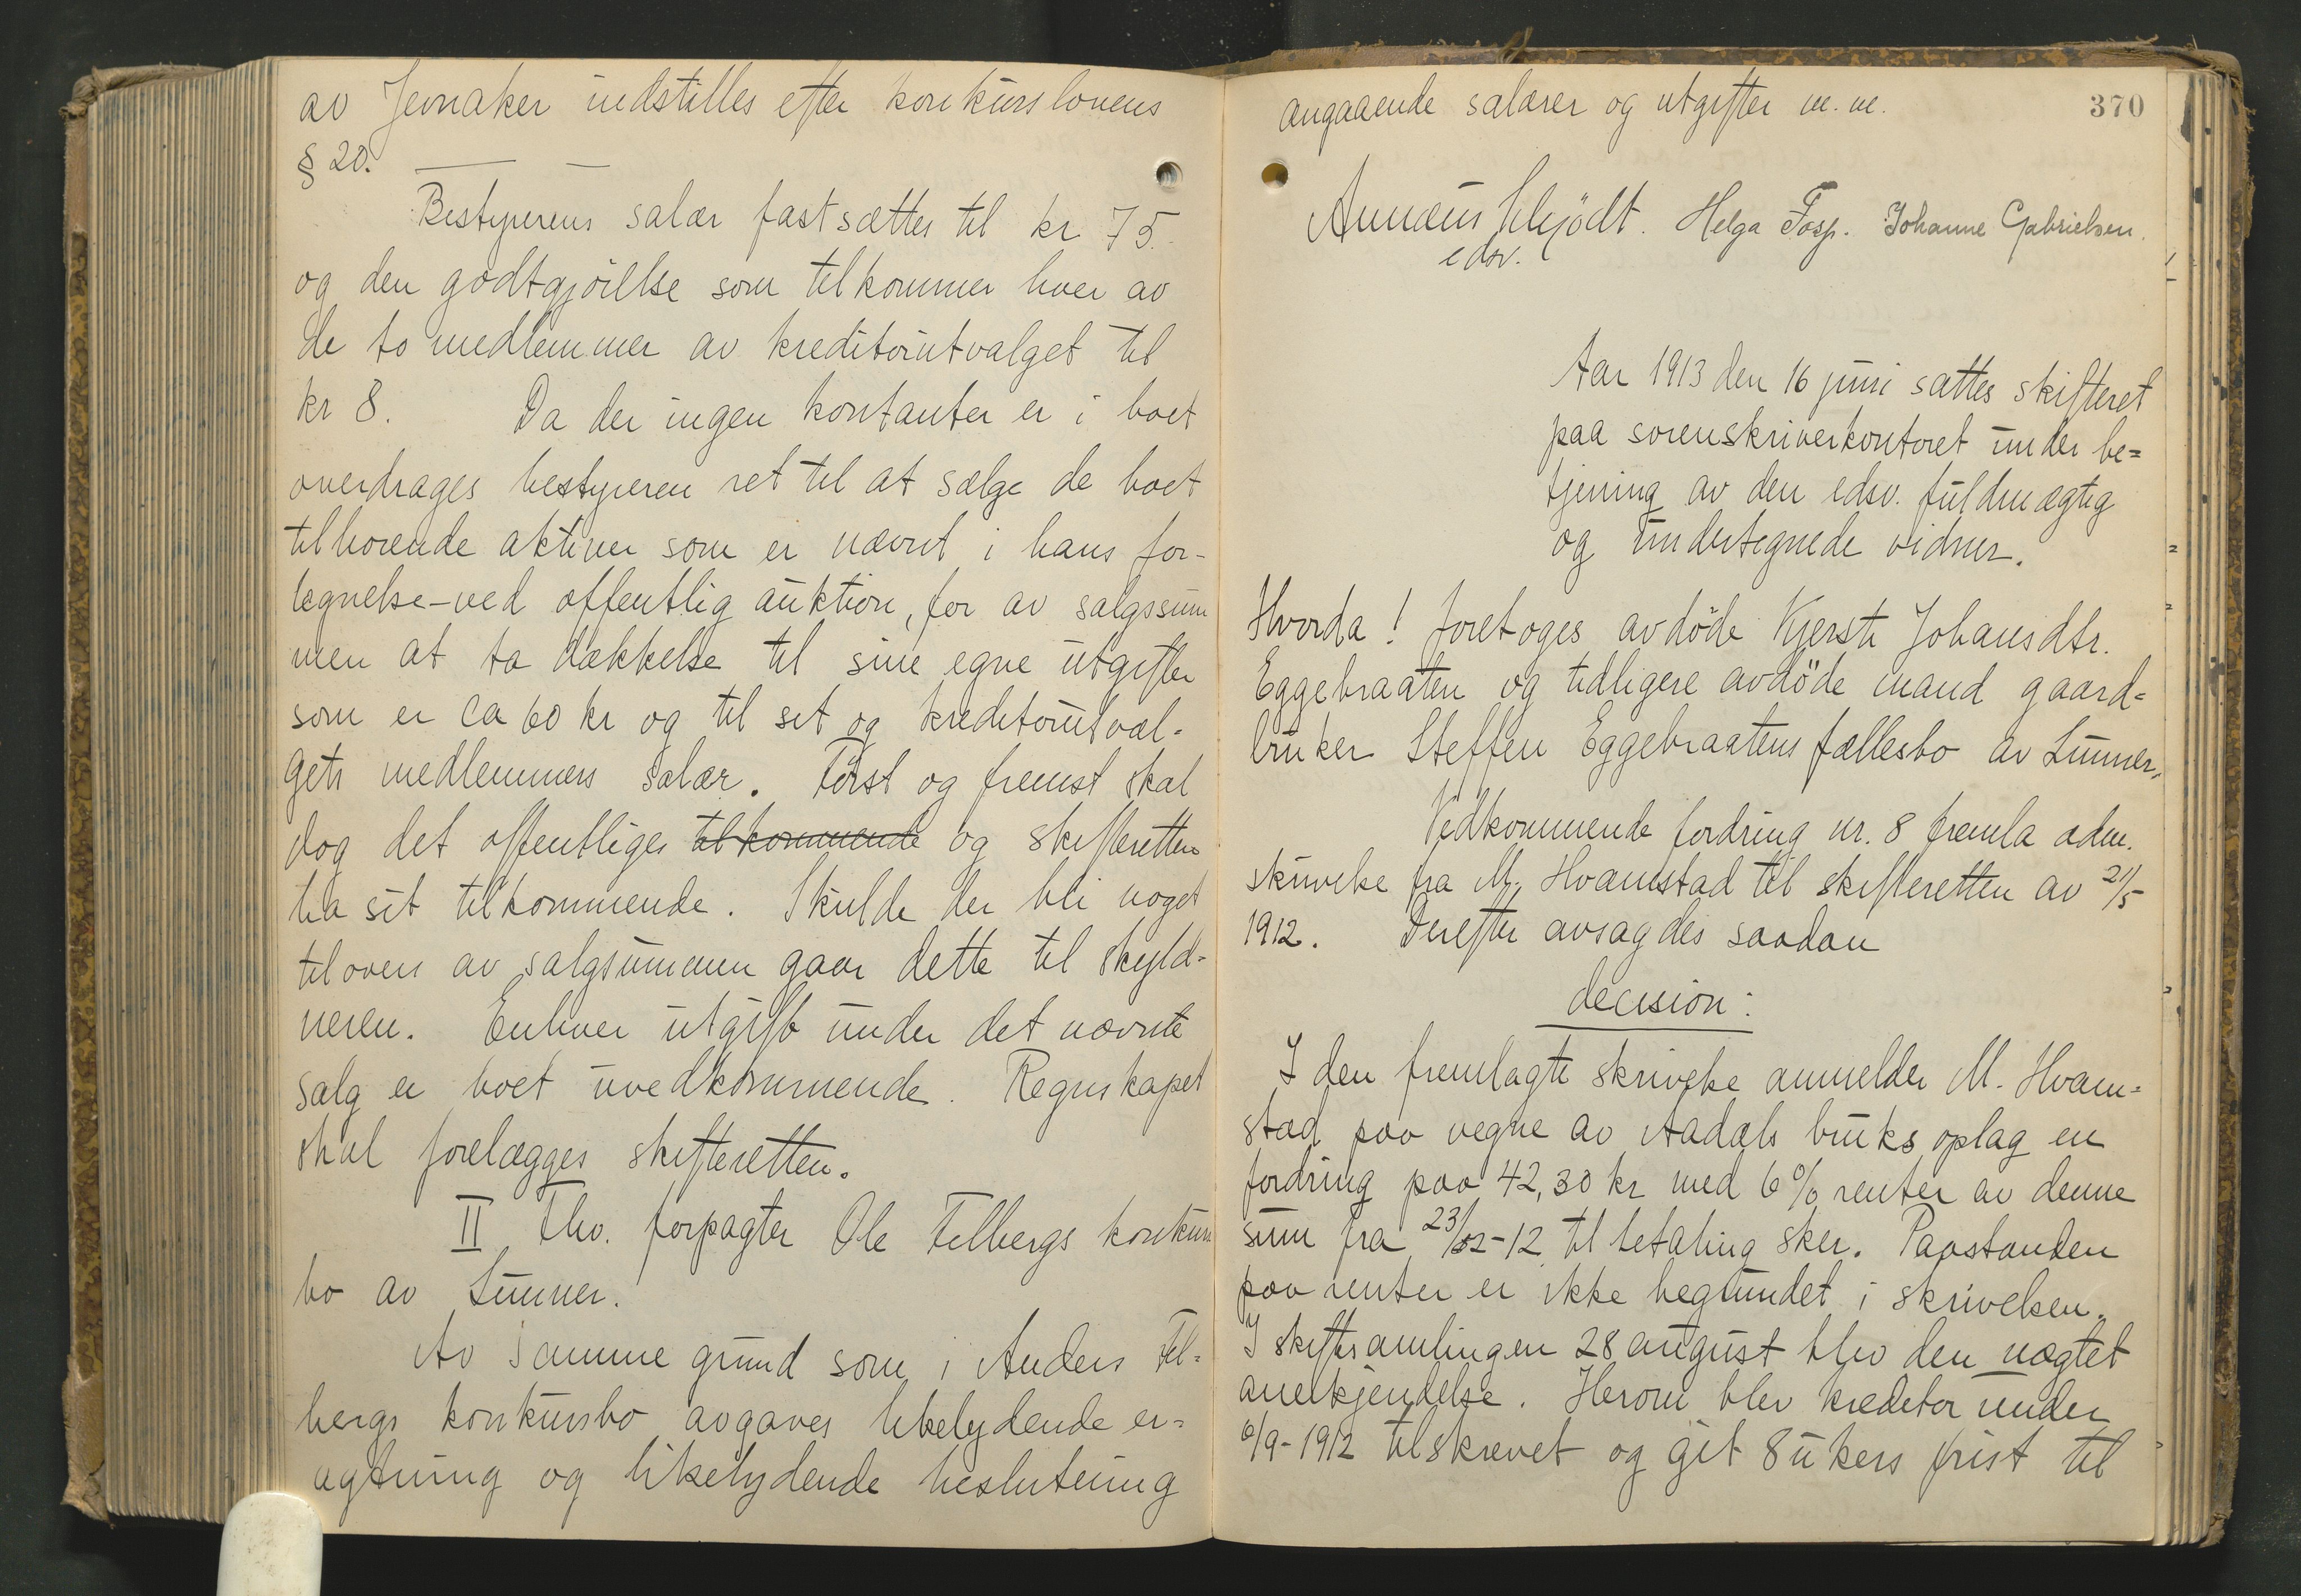 av Jevnaker indstilles efter konkurslovens
§ 20.
Bestyrerens salær fastsættes til kr 75.
og den godtgjörelse som tilkommer hver av
de to medlemmer av kreditorutvalget til
kr 8. Da der ingen kontanter er i boet
overdrages bestyreren ret til at sælge de boet
tilhörende aktiver som er nævnt i hans for-
tegnelse - ved offentlig auktion, for av salgssum
men at ta dækkelse til sine egne utgifter
som er ca 60 kr og til set og kreditorutval-
gets medlemmers salær. Först og fremst skal
dog det offentliges tilkommende og skifteretten
ha sit tilkommende. Skulde der bli noget
tilovers av salgsummen gaar dette til skyld-
neren. Enhver utgift under det nævnte
salg er boet uvedkommende. Regnskapet
skal forelægges skifteretten.
II Thv. forpagter Ole Felbergs konkurs
bo av Lunner.
Av samme grund som i Anders Fel-
bergs konkursbo avgaves likelydende er-
agtning og likelydende beslutning
angaaende salærer og utgifter m.m. 370
Annæus Schjödt. Helga Fosp. Johanne Gabrielsen.
edsv.
Aar 1913 den 16 juni sattes skifteret
paa sorenskriverkontoret under be=
tjening av den edsv. fuldmægtig
og undertegnede vidner.
Hvorda! foretoges avdöde Kjersti Johansdtr.
Eggebraaten og tidligere avdöde mand gaard=
bruker Steffen Eggebraatens fællesbo av Lunner.
Vedkommende fordring nr. 8 fremla adm.
skrivelse fra M. Hvamstad til skifteretten av 21/5
1912. Derefter avsagdes saadan
decision:
I den fremlagte skrivelse anmelder M. Hvam=
stad paa vegne av Aadals bruks oplag en
fordring paa 42,30 kr med 6% renter av denne
sum fra 23/2-12 til betaling sker. Paastanden
paa renter er ikke begrundet i skrivelsen.
I skiftesamlingen 28 august blev den nægtet
anerkjendelse. Herom blev kreditor under
6/9-1912 tilskrevet og git 8 ukers frist til